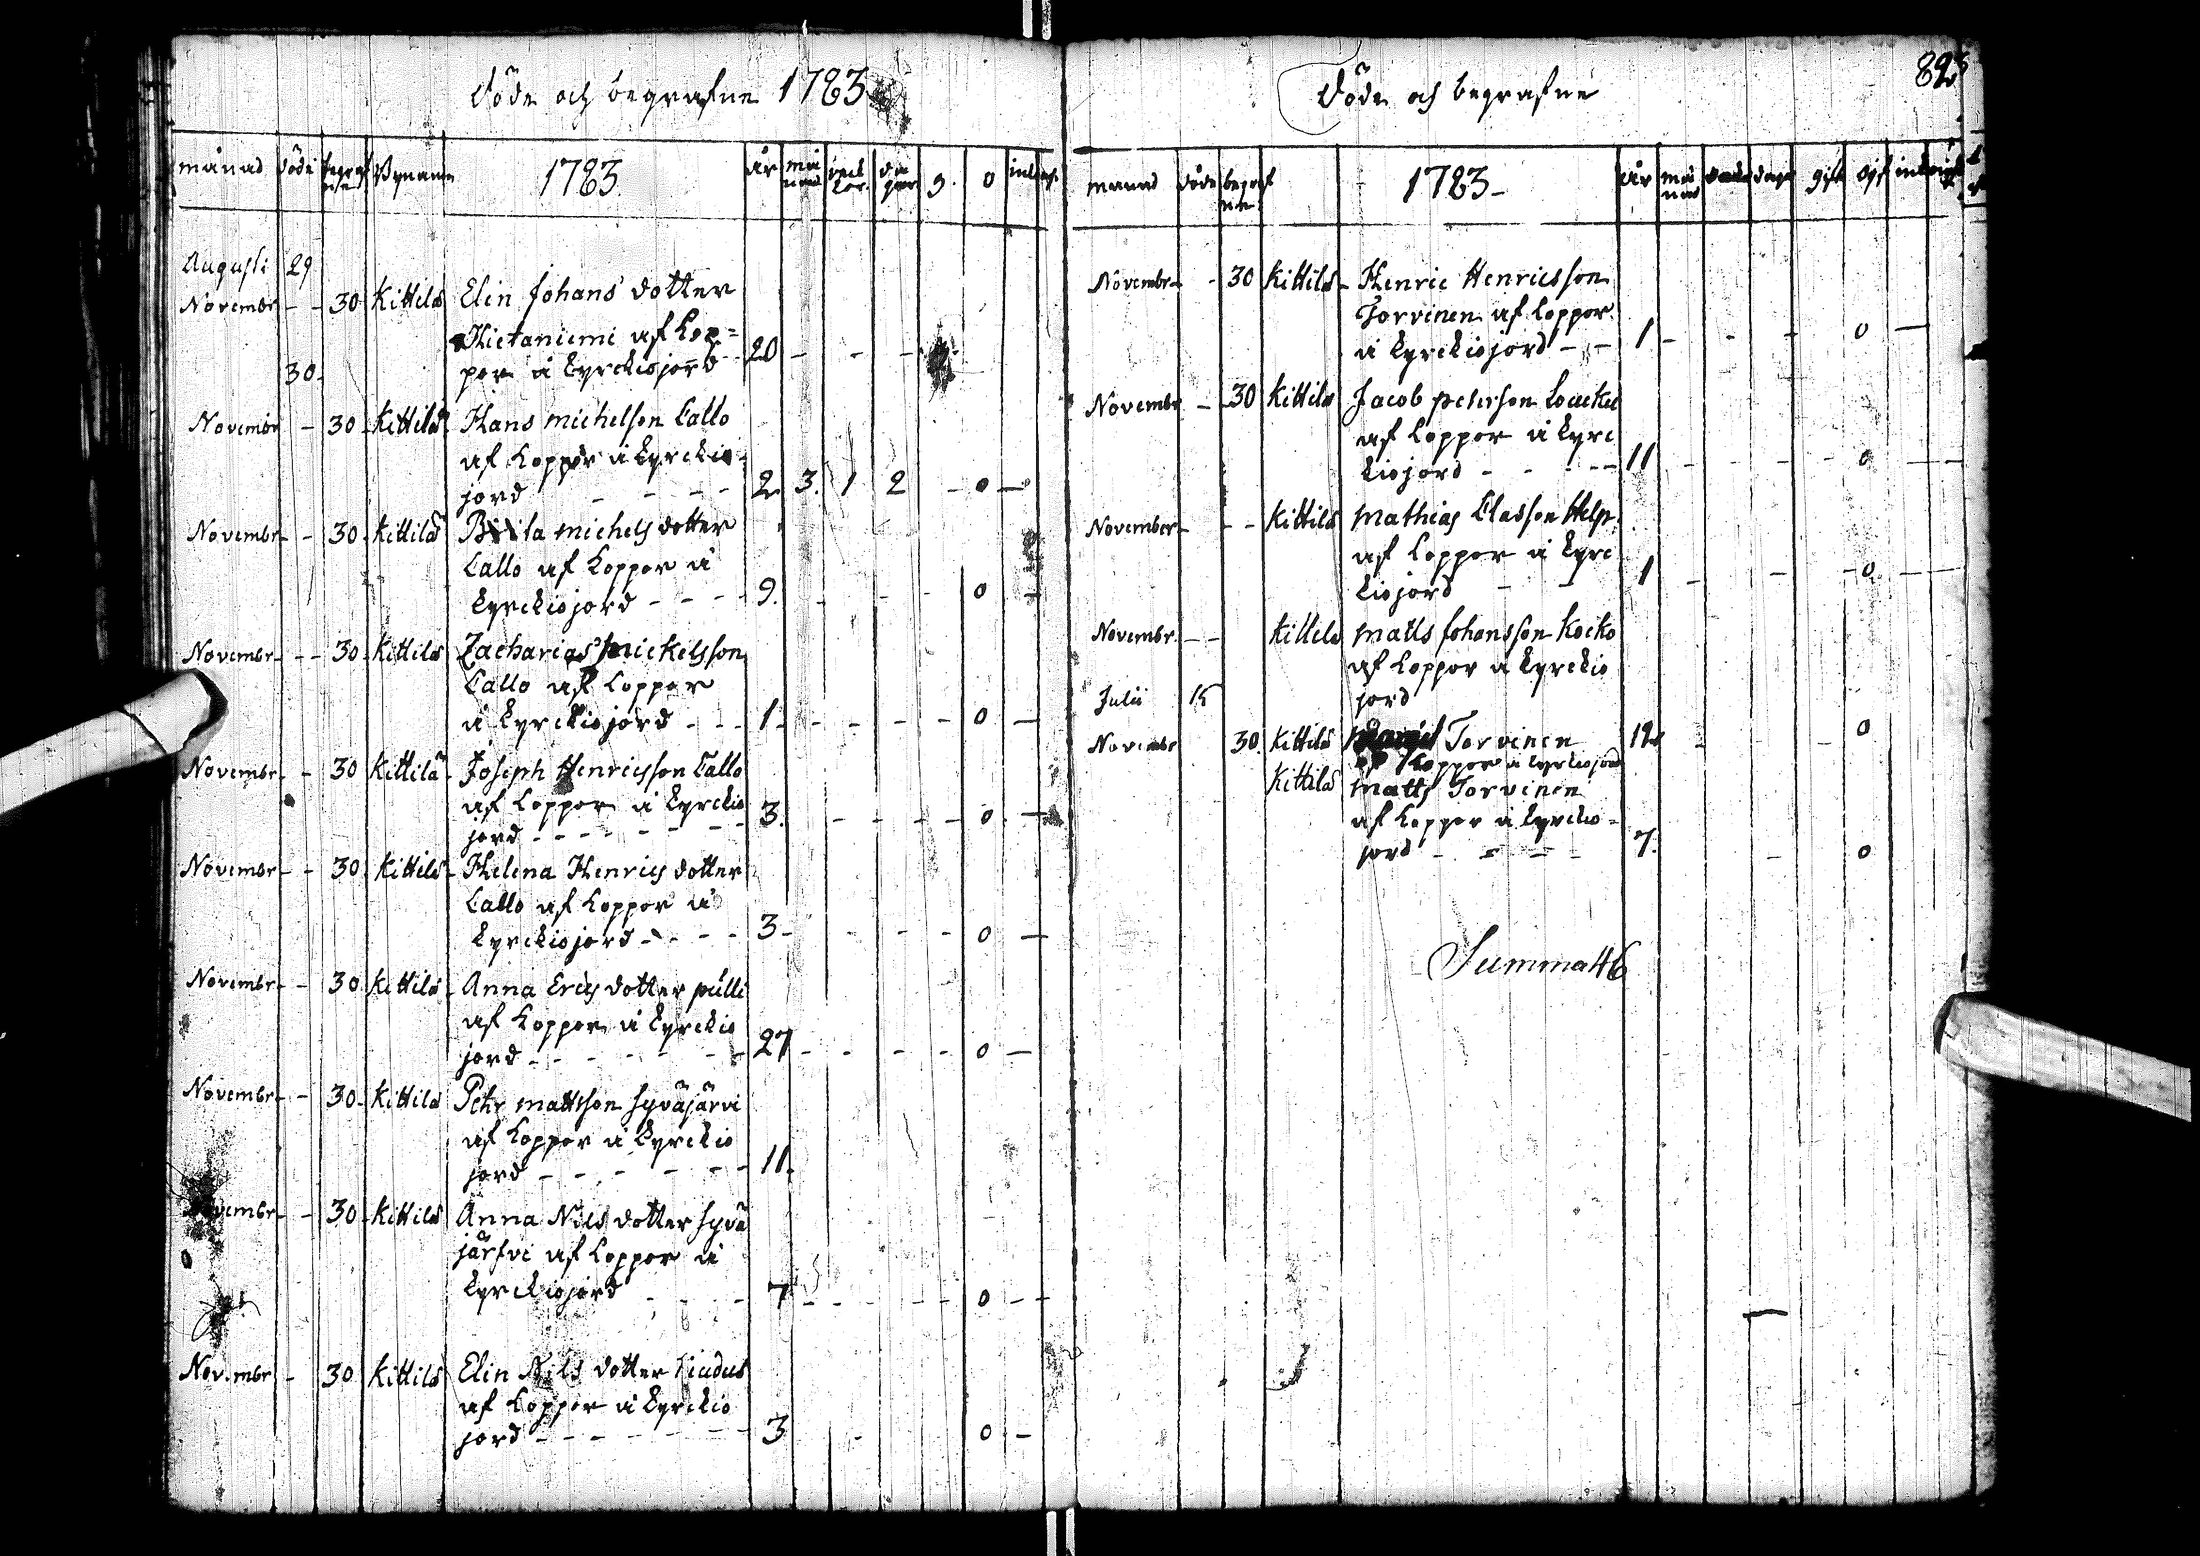 Döde och begrafne 1783
månad döde begraf ne Bynamn 1783 år må nad veck or da gar g. o inh
Augusti 29
Novembr - - 30 Kittilä Elin Johans dotter
Hietaniemi af Kop=
30. por å Kyrckiojord - - 20 - - -
Novembr - 30 Kittilä Hans Michelson Kallo
af Koppor å Kyrckio
jord - - - - 2 3. 1 2 - 0 -
Novembr - - 30 Kittilä Brita Michels dotter
Kallo af Koppor å
Kyrckiojord - - - - 9. - - - 0 -
Novembr - - - 30 Kittilä Zacharias Mickelsson
Kallo af Koppor
å Kyrckiojord - - - 1 - - - - - 0 -
Novembr - - 30 Kittilä Joseph Henricsson Kallo
af Koppor å Kyrckio
jord - - - - - - 3. - - - - 0 -
Novembr - - 30 Kittilä Helena Henrics dotter
Kallo af Koppor å
Kyrckiojord - - - - 3 - - - - 0 -
Novembr - - 30 Kittilä Anna Erics dotter pulli
af Koppor å Kyrckio
jord - - - - - - 27 - - - - 0 -
Novembr - - 30 Kittilä Petr Mattson Syväjärvi
af Koppor å Kyrckio
jord - - - - - - 11.
Novembr - - 30 Kittilä Anna Nils dotter Syvä
järfvi af Koppor å
Kyrckiojord - - - 7 - - - - - 0 - -
Novembr - 30 Kittilä Elin Nils dotter
af Koppor å Kyrckio
jord - - - - - - 3 - 0 -
825
Döde och begrafne
månad döde begraf ne 1783 - år må nad gift ogift
Novembr - - 30 Kittilä - Henric Henricsson
Torvinen af Koppor
å Kyrckiojord - - 1 - - - 0 -
Novembr - 30 Kittilä Jacob Peterson
af Koppor å Kyrc
kiojord - - - - 11 - - - - 0 - -
November - - - Kittilä Mathias Classon
af Koppor å Kyrc
kiojord - - 1 - - - 0 - -
Novembr - - Kittilä Matts Johansson Kocko
af Koppor å Kyrckio
Julii 15 jord
Novembr 30. Kittilä Torvinen 12 - - - 0
af Koppor å Kyrckiojord
Kittilä Matts Torvinen
af Koppor å Kyrckio -
jord - - - - 7. - 0
Summa 46